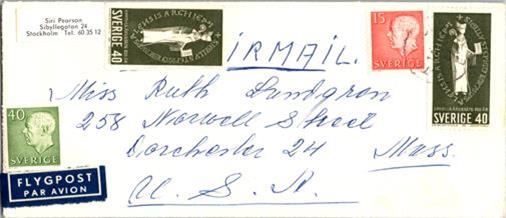 Siri Pearson
Sibyllegatan 24
Stockholm Tel. 60 35 12
SVERIGE 40
15
SVERIGE
SVERIGE 40
40
SVERIGE
IRMAIL.
Miss Ruth Lundgren
258 Norwell Street
Dorchester 24 Mass.
U. S. A.
FLYGPOST
PAR AVION